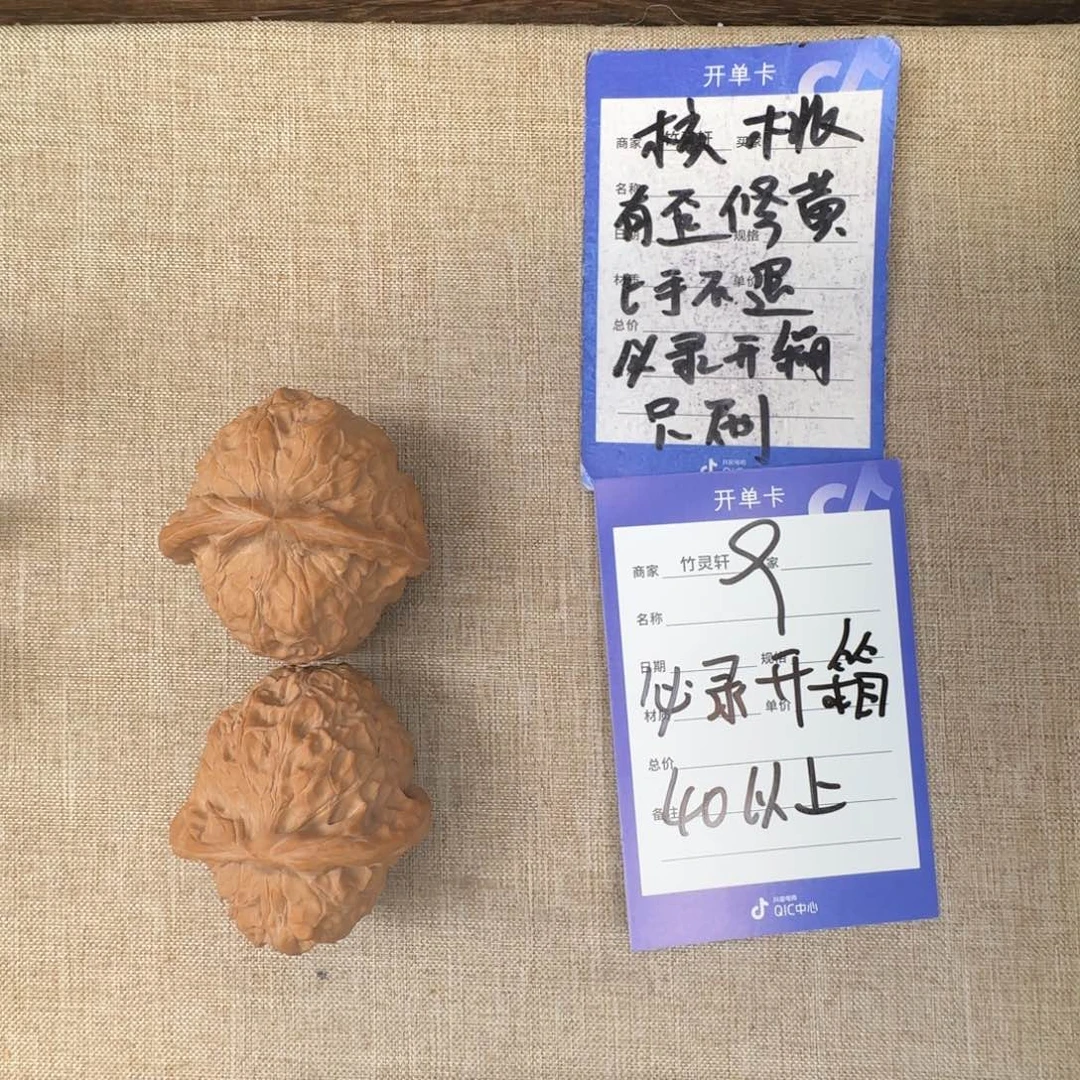 开单卡
核桃
商家 竹灵轩
名称
有歪修黄
日期 规格
上手不退
材质 单价
总价
必录开箱
只刷
抖音电商
开单卡
商家 竹灵轩 家
名称
日期 规格
必录开箱
材质 单价
总价
40以上
备注
抖音电商
QIC中心